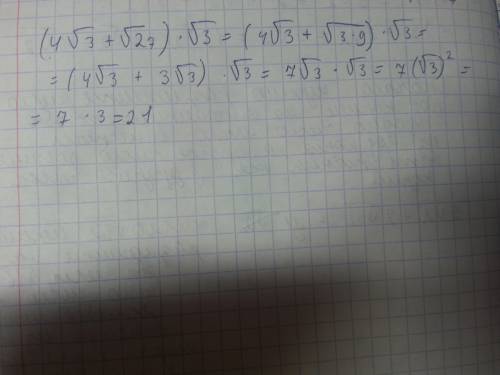 (4√3 + √27) · √3 = (4√3 + √3·9) · √3 =
= (4√3 + 3√3) · √3 = 7√3 · √3 = 7(√3)² =
= 7 · 3 = 21